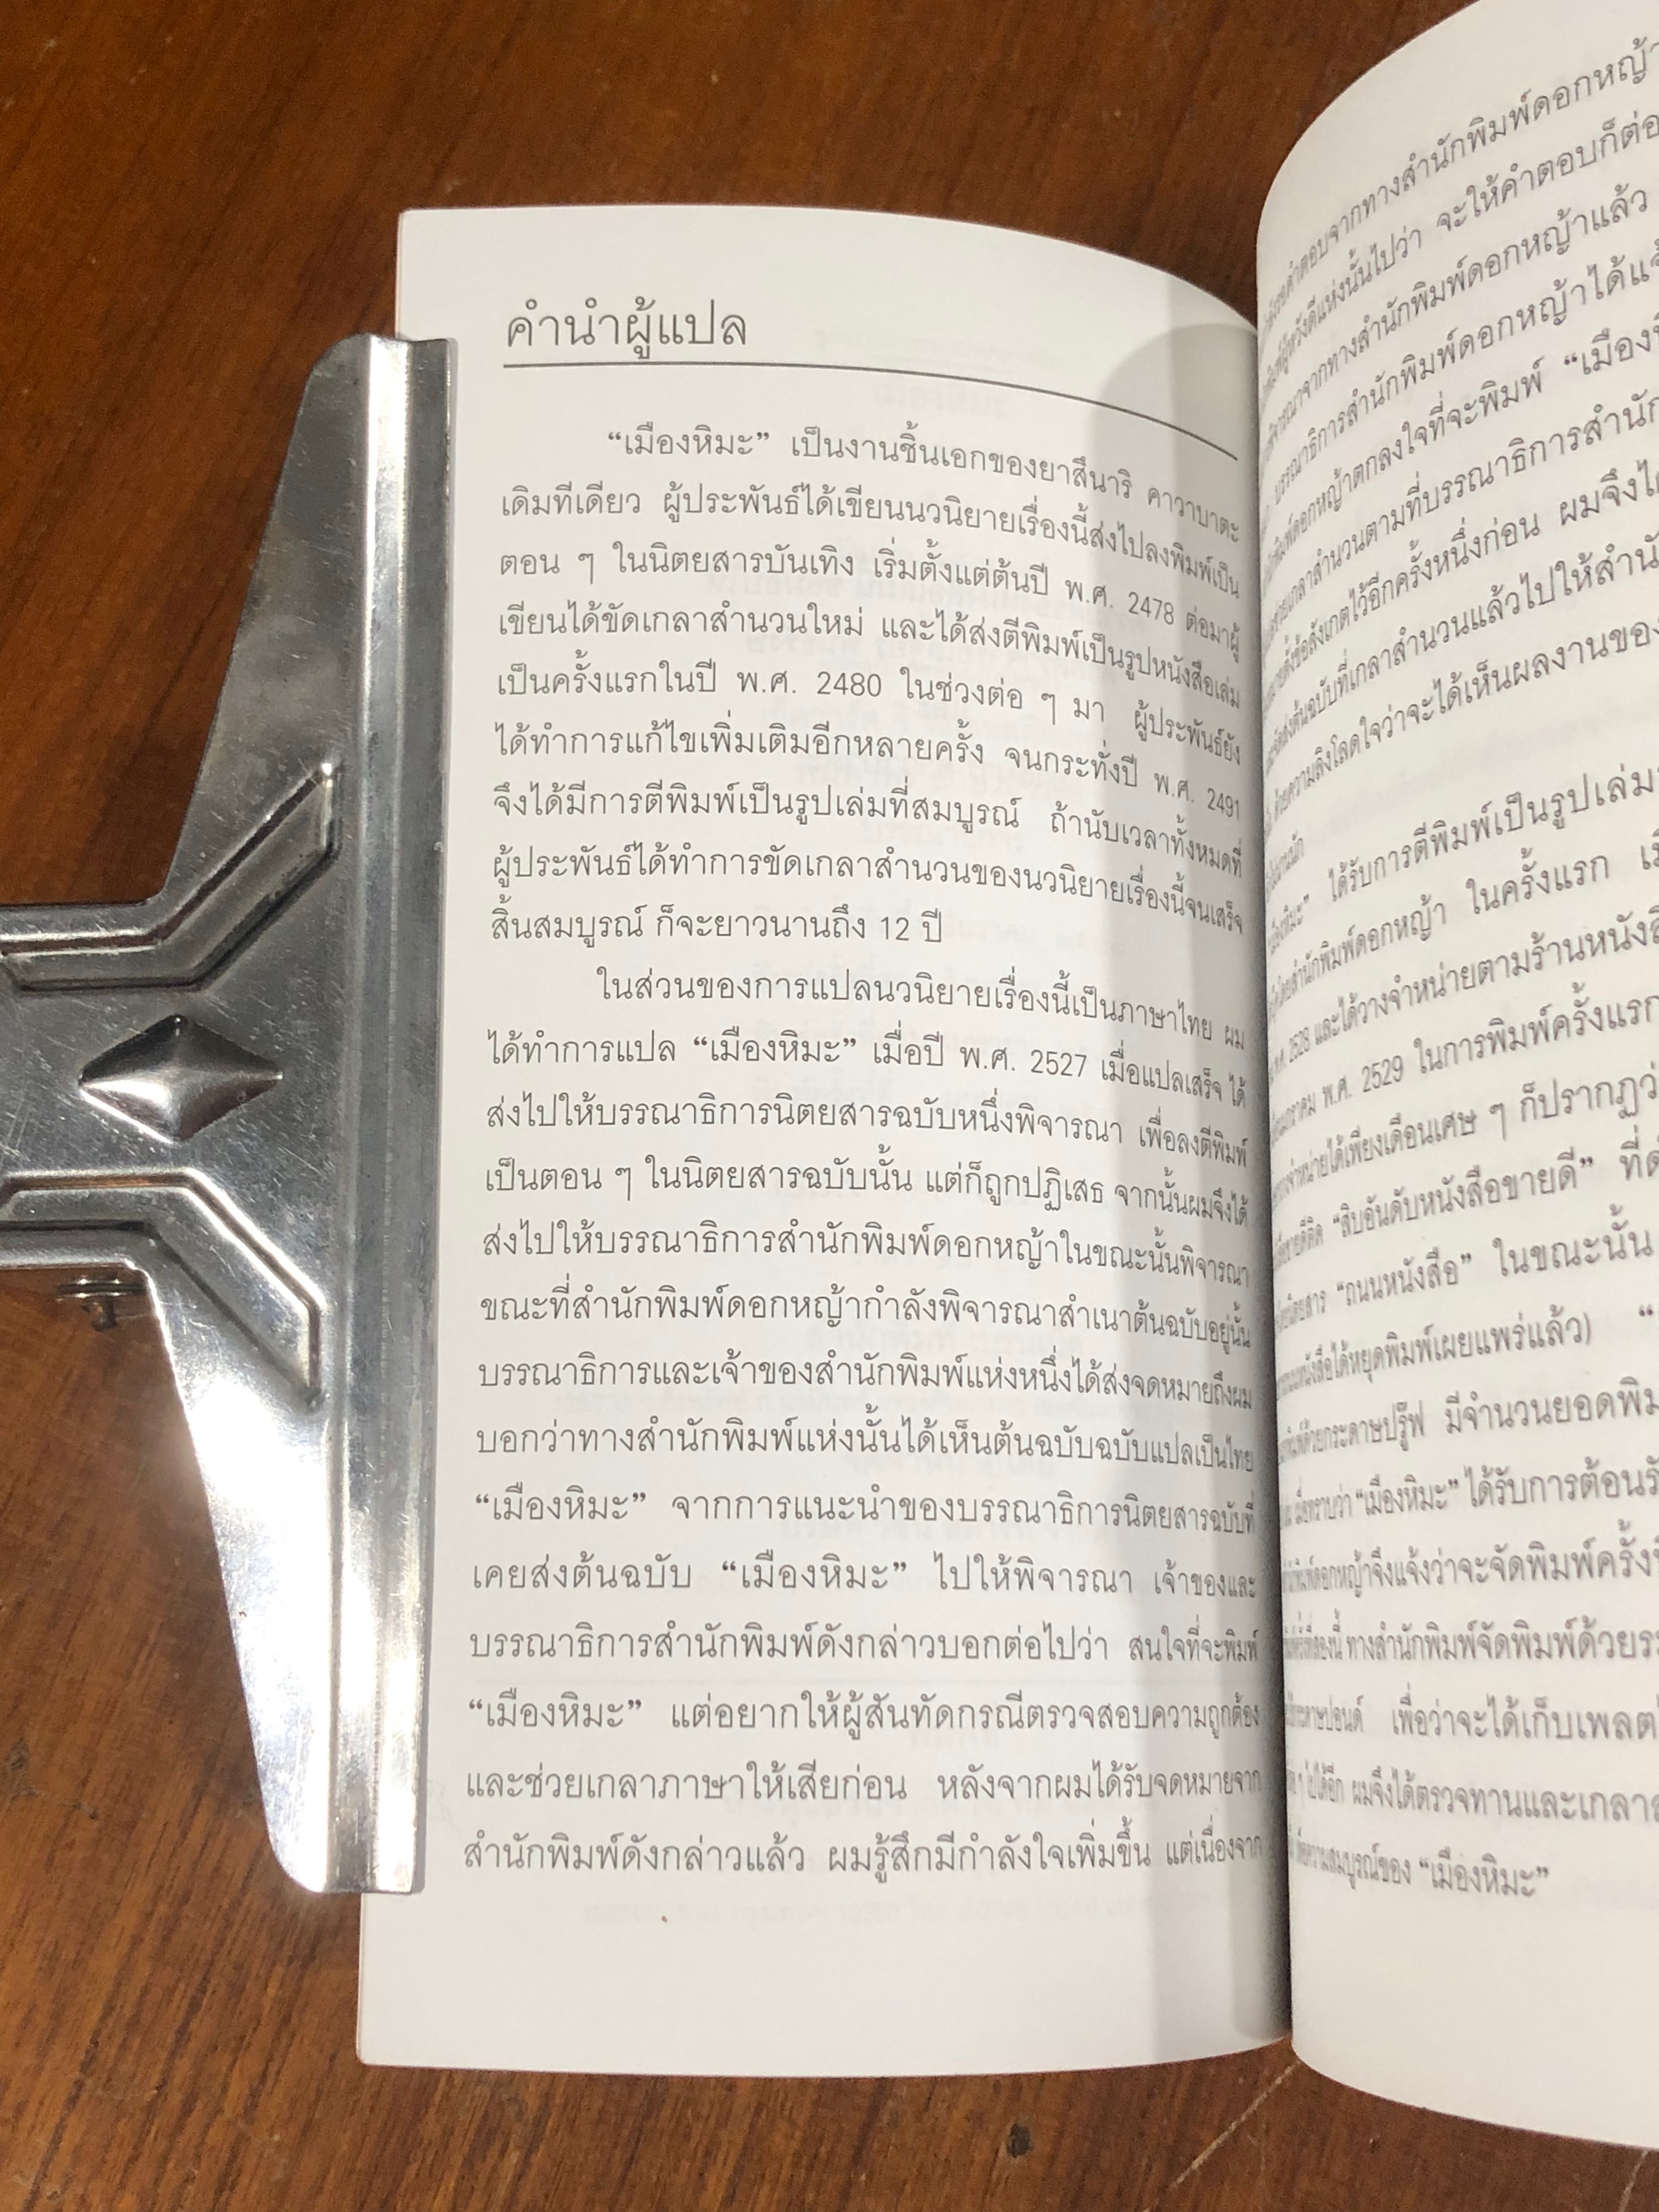 คำนำผู้แปล
“เมืองหิมะ” เป็นงานชิ้นเอกของยาสึนาริ คาวาบาตะ
เดิมทีเดียว ผู้ประพันธ์ได้เขียนนวนิยายเรื่องนี้ส่งไปลงพิมพ์เป็น
ตอน ๆ ในนิตยสารบันเทิง เริ่มตั้งแต่ต้นปี พ.ศ. 2478 ต่อมาผู้
เขียนได้ขัดเกลาสำนวนใหม่ และได้ส่งตีพิมพ์เป็นรูปหนังสือเล่ม
เป็นครั้งแรกในปี พ.ศ. 2480 ในช่วงต่อ ๆ มา ผู้ประพันธ์ยัง
ได้ทำการแก้ไขเพิ่มเติมอีกหลายครั้ง จนกระทั่งปี พ.ศ. 2491
จึงได้มีการตีพิมพ์เป็นรูปเล่มที่สมบูรณ์ ถ้านับเวลาทั้งหมดที่
ผู้ประพันธ์ได้ทำการขัดเกลาสำนวนของนวนิยายเรื่องนี้จนเสร็จ
สิ้นสมบูรณ์ ก็จะยาวนานถึง 12 ปี
ในส่วนของการแปลนวนิยายเรื่องนี้เป็นภาษาไทย ผม
ได้ทำการแปล “เมืองหิมะ” เมื่อปี พ.ศ. 2527 เมื่อแปลเสร็จ ได้
ส่งไปให้บรรณาธิการนิตยสารฉบับหนึ่งพิจารณา เพื่อลงตีพิมพ์
เป็นตอน ๆ ในนิตยสารฉบับนั้น แต่ก็ถูกปฏิเสธ จากนั้นผมจึงได้
ส่งไปให้บรรณาธิการสำนักพิมพ์ดอกหญ้าในขณะนั้นพิจารณา
ขณะที่สำนักพิมพ์ดอกหญ้ากำลังพิจารณาสำเนาต้นฉบับอยู่นั้น
บรรณาธิการและเจ้าของสำนักพิมพ์แห่งหนึ่งได้ส่งจดหมายถึงผม
บอกว่าทางสำนักพิมพ์แห่งนั้นได้เห็นต้นฉบับฉบับแปลเป็นไทย
“เมืองหิมะ” จากการแนะนำของบรรณาธิการนิตยสารฉบับที่
เคยส่งต้นฉบับ “เมืองหิมะ” ไปให้พิจารณา เจ้าของและ
บรรณาธิการสำนักพิมพ์ดังกล่าวบอกต่อไปว่า สนใจที่จะพิมพ์
“เมืองหิมะ” แต่อยากให้ผู้สันทัดกรณีตรวจสอบความถูกต้อง
และช่วยเกลาภาษาให้เสียก่อน หลังจากผมได้รับจดหมายจาก
สำนักพิมพ์ดังกล่าวแล้ว ผมรู้สึกมีกำลังใจเพิ่มขึ้น แต่เนื่องจาก
คำตอบจากทางสำนักพิมพ์ดอกหญ้า
แห่งนั้นไปว่า จะให้คำตอบก็ต่อ
จากทางสำนักพิมพ์ดอกหญ้าแล้ว
บรรณาธิการสำนักพิมพ์ดอกหญ้าได้
ตกลงใจที่จะพิมพ์
เกลาสำนวนตามที่บรรณาธิการ
ตั้งข้อสังเกตไว้อีกครั้งหนึ่งก่อน ผมจึง
ส่งต้นฉบับที่เกลาสำนวนแล้วไปให้
ด้วยความลิงโลดใจว่าจะได้เห็นผลงานของ
ได้รับการตีพิมพ์เป็นรูปเล่ม
สำนักพิมพ์ดอกหญ้า ในครั้งแรก
พ.ศ. 2528 และได้วางจำหน่ายตามร้าน
พ.ศ. 2529 ในการพิมพ์ครั้งแรก
จำหน่ายได้เพียงเดือนเศษ ๆ ก็ปรากฏ
“สิบอันดับหนังสือขายดี” ที่
“ถนนหนังสือ” ในขณะนั้น
ได้หยุดพิมพ์เผยแพร่แล้ว)
ด้วยกระดาษปรู๊ฟ มีจำนวนยอด
“เมืองหิมะ” ได้รับการต้อนรับ
จึงแจ้งว่าจะจัดพิมพ์ครั้ง
ทางสำนักพิมพ์จัดพิมพ์ด้วย
เพื่อว่าจะได้เก็บเพลต
ผมจึงได้ตรวจทานและเกลา
ความสมบูรณ์ของ “เมืองหิมะ”